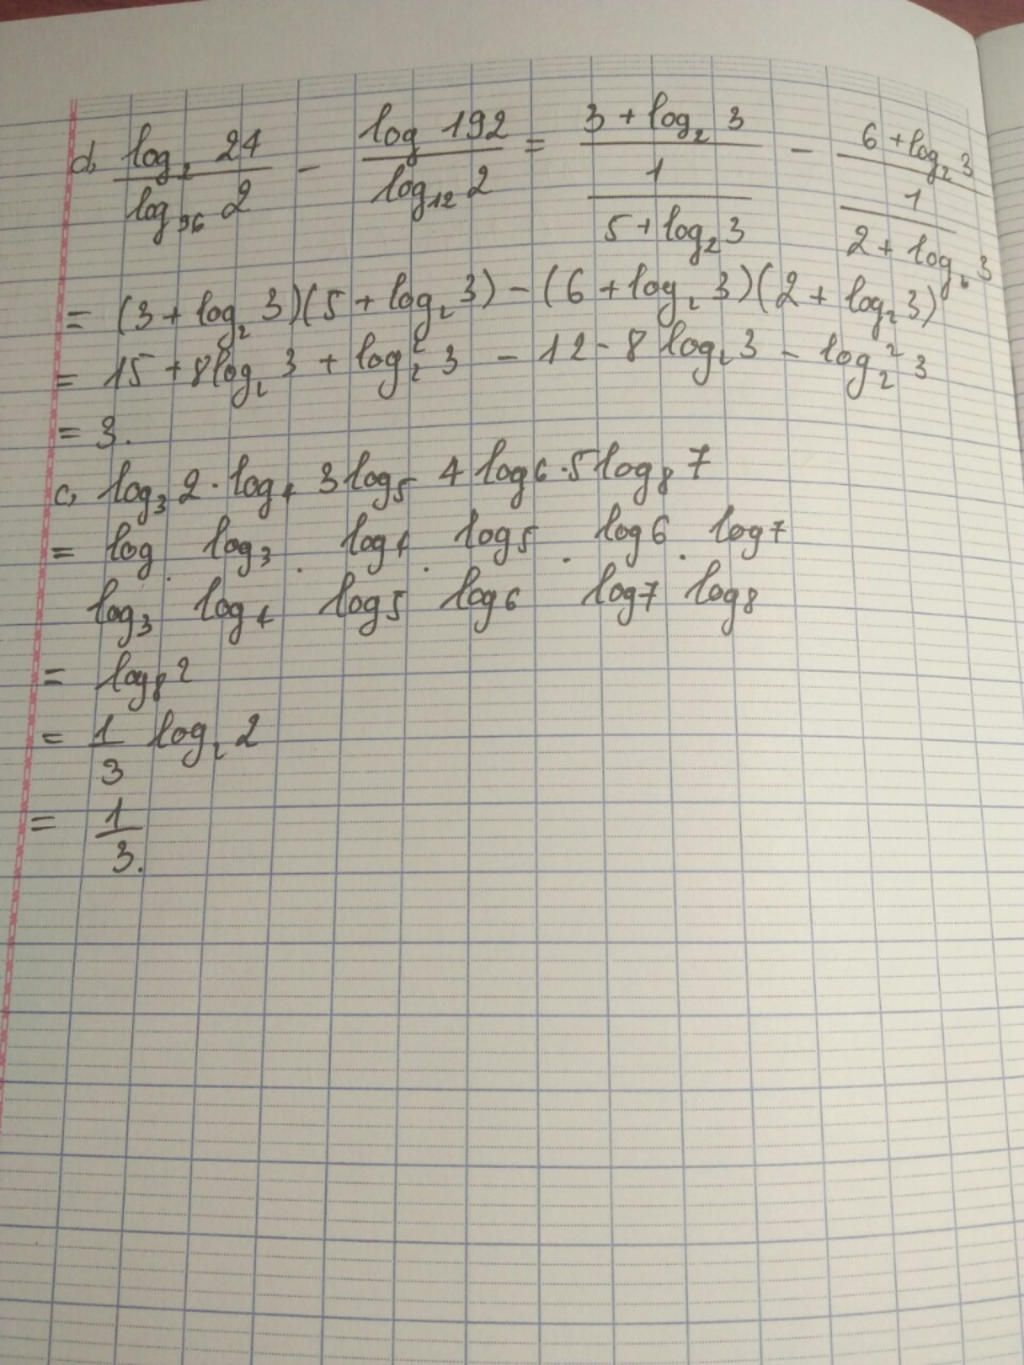 d, log₂ 24 / log₉₆ 2 - log 192 / log₁₂ 2 = (3 + log₂ 3) / (1 / (5 + log₂ 3)) - (6 + log₂ 3) / (1 / (2 + log₂ 3))
= (3 + log₂ 3)(5 + log₂ 3) - (6 + log₂ 3)(2 + log₂ 3)
= 15 + 8log₂ 3 + log₂² 3 - 12 - 8 log₂ 3 - log₂² 3
= 3.
c, log₃ 2 . log₄ 3 log₅ 4 log 6 . 5 log₈ 7
= log / log₃ . log₃ / log₄ . log₄ / log5 . log5 / log6 . log6 / log7 . log7 / log8
= log₈ 2
= 1/3 log₂ 2
= 1/3.